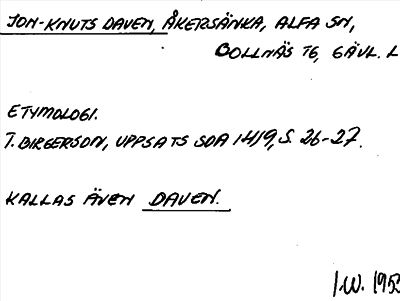 JON-KNUTS DAVEN, ÅKERSÄNKA, ALFA SN,
BOLLNÄS TG, GÄVL. L
ETYMOLOGI.
T. BIRGERSON, UPPSATS SOA 1419, S. 26-27.
KALLAS ÄVEN DAVEN.
I.W. 1953